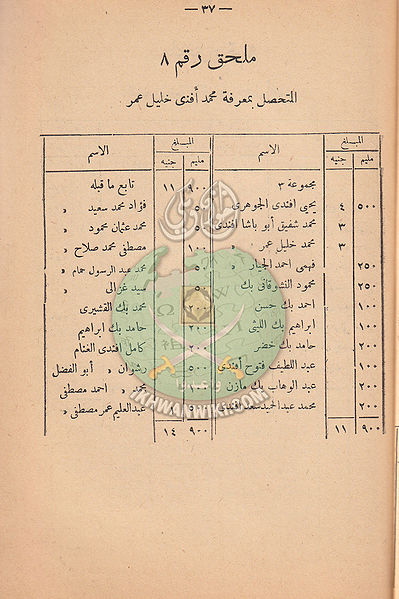 — ٣٧ —
ملحق رقم ٨
المتحصل بمعرفة محمد أفندى خليل عمر
المبلغ الاسم المبلغ الاسم
مليم جنيه مليم جنيه
مجموعة ٣
٥٠٠ ٤ يحيى افندى الجوهرى
٣ محمد شفيق أبو باشا افندى
٣ محمد خليل عمر »
٢٥٠ فهمى احمد الجيار »
٢٥٠ محمود النشوقاتى بك
١٠٠ احمد بك حسن
١٠٠ ابراهيم بك الليثى
٢٠٠ حامد بك خضر
١٠٠ عبد اللطيف فتوح أفندى
٢٠٠ عبد الوهاب بك مازن
٢٠٠ محمد عبد الحميد سعد افندى
٩٠٠ ١١
٩٠٠ ١١ تابع ما قبله
فؤاد محمد سعيد »
محمد عثمان محمود »
١٠٠ مصطفى محمد صلاح »
محمد عبد الرسول حمام »
سيد غزالى »
٢٠٠ محمد بك القشيرى
٢٠٠ حامد بك ابراهيم
٢٠٠ كامل افندى الغنام
٥٠٠ رشوان » أبو الفضل
» احمد مصطفى
عبد العليم عمر مصطفى »
٩٠٠ ١٤
IKHWANWIKI.COM